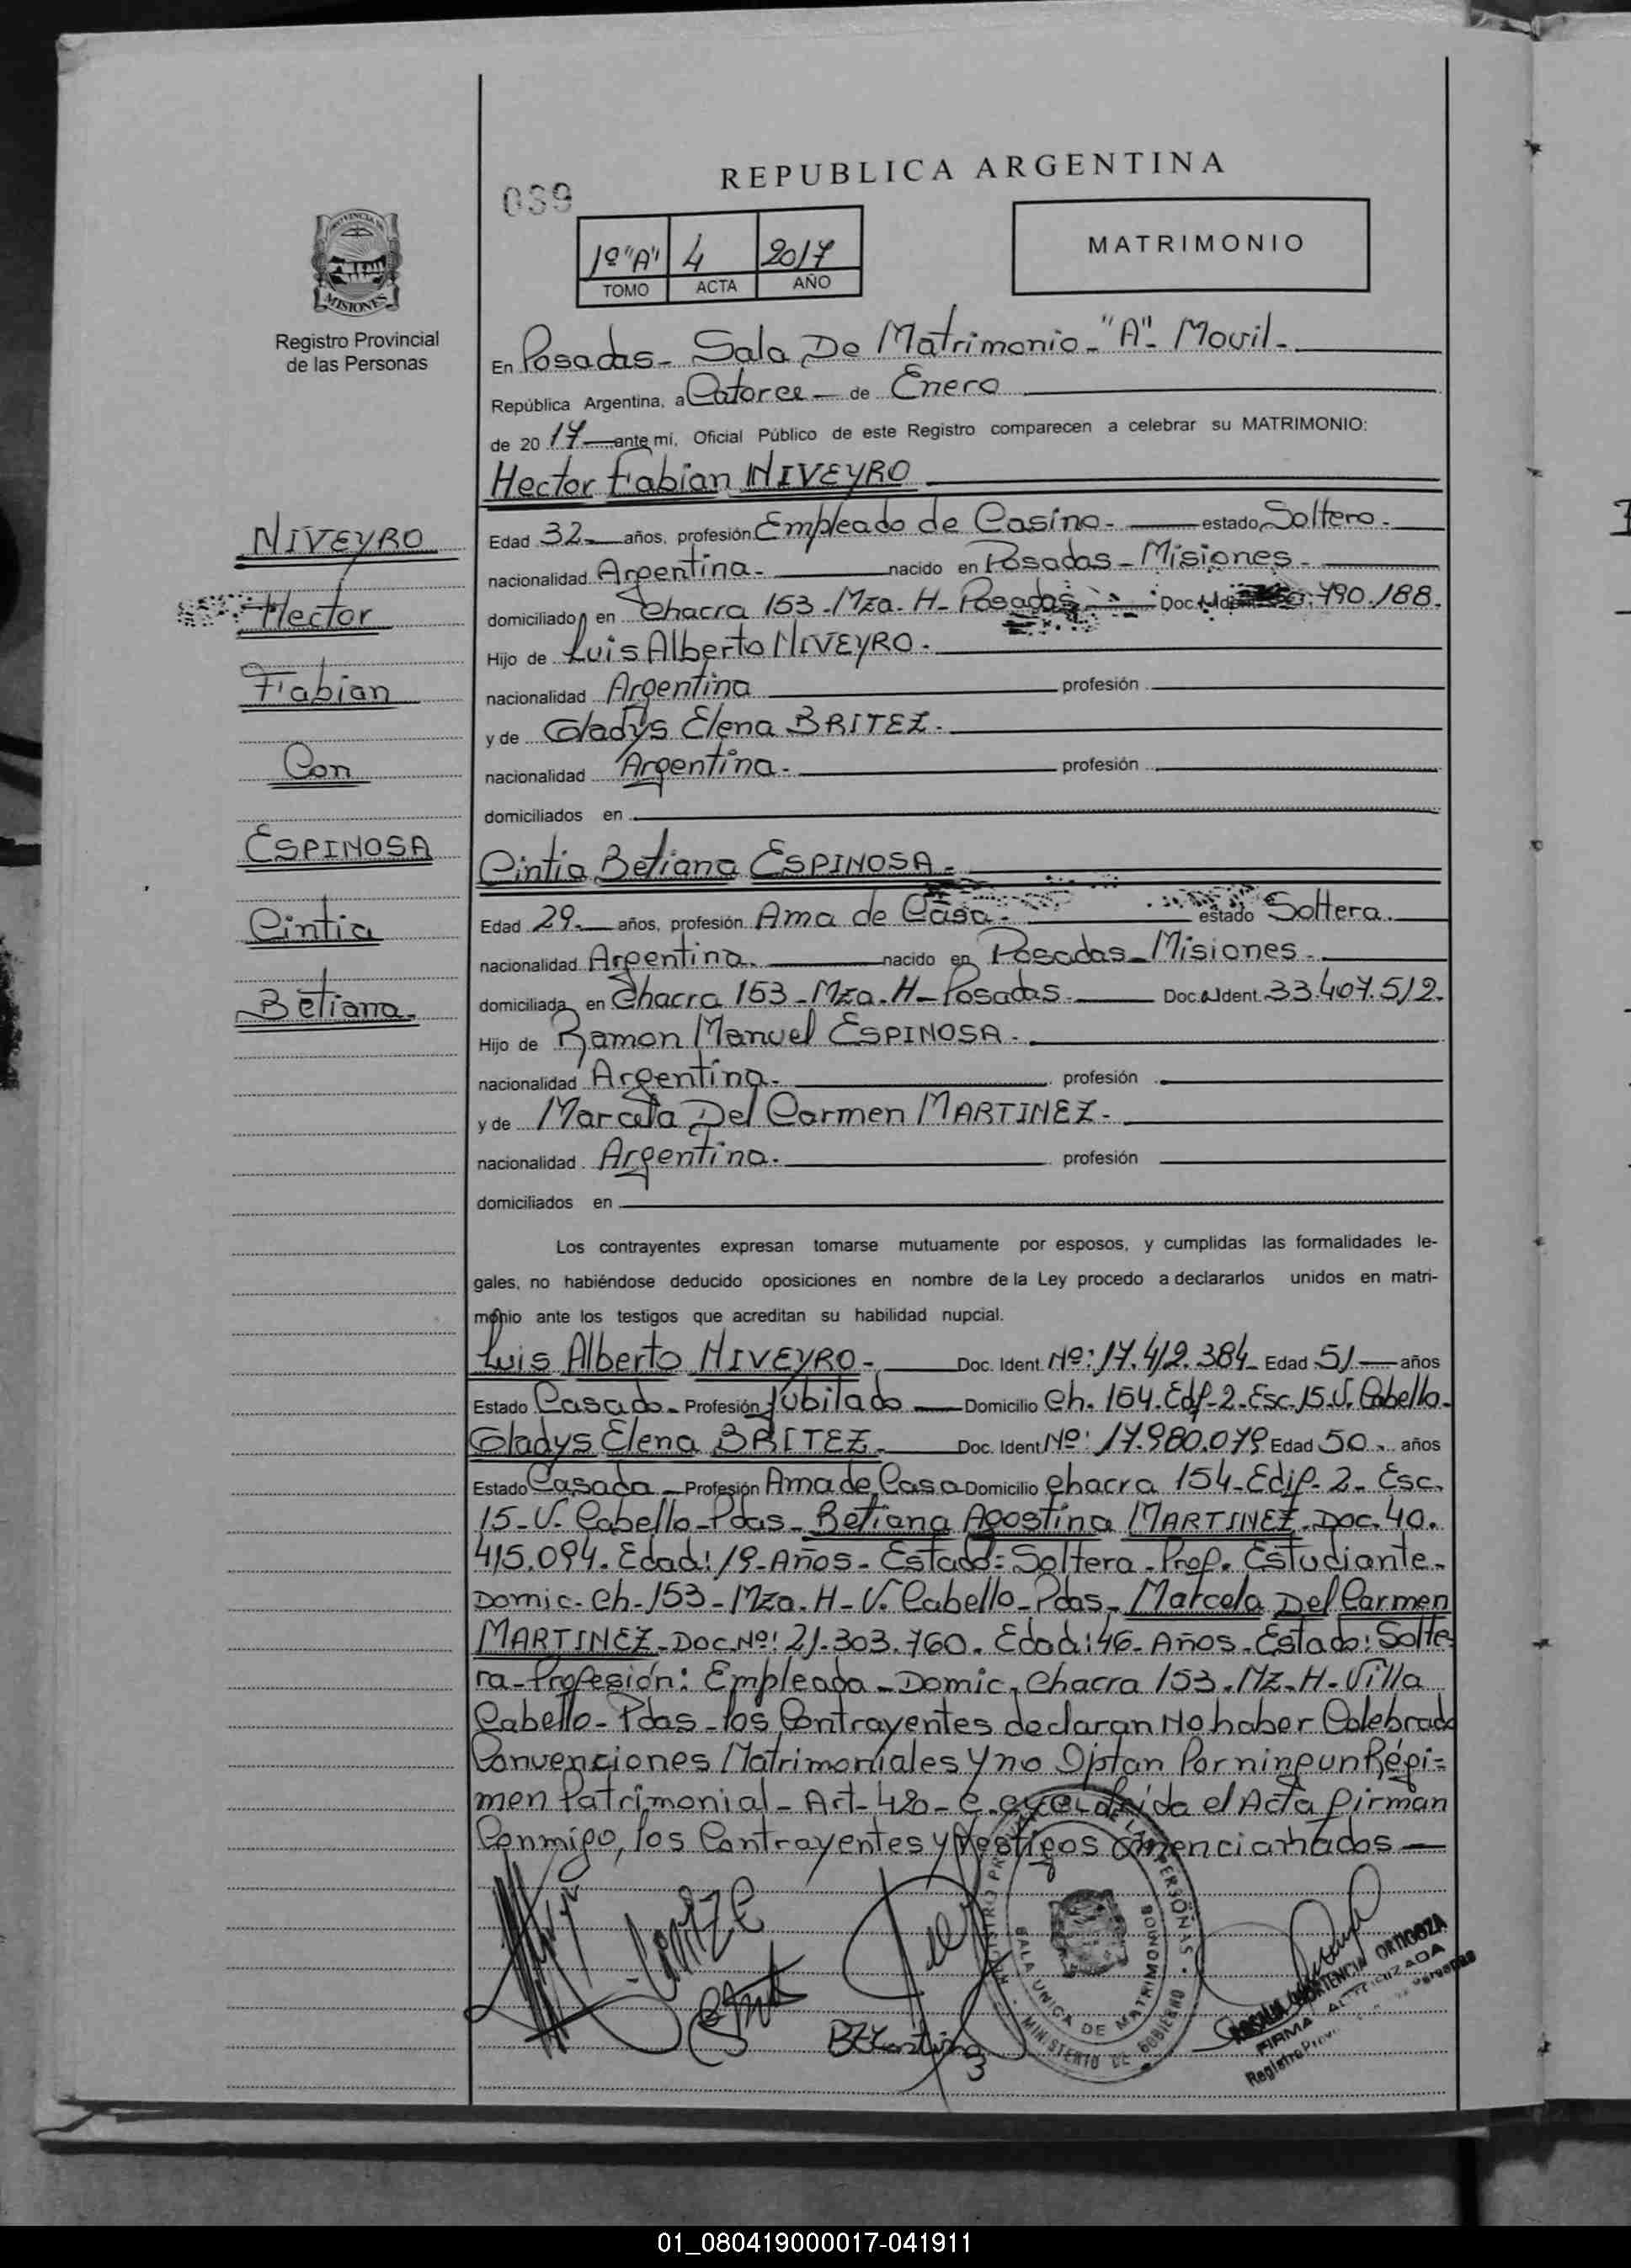 REPUBLICA ARGENTINA
039
1º "A" 4 2017
TOMO ACTA AÑO
MATRIMONIO
MISIONES
Registro Provincial
de las Personas
En Posadas - Sala De Matrimonio - "A" - Movil -
República Argentina, a Catorce - de Enero
de 20 17 ante mi, Oficial Público de este Registro comparecen a celebrar su MATRIMONIO:
Hector Fabian NIVEYRO
NIVEYRO
Hector
Fabian
Con
ESPINOSA
Cintia
Betiana.
Edad 32 años, profesión Empleado de Casino - estado Soltero -
nacionalidad Argentina - nacido en Posadas - Misiones -
domiciliado en Chacra 153 - Mza - H - Posadas Doc. 790.188.
Hijo de Luis Alberto NIVEYRO -
nacionalidad Argentina profesión
y de Gladys Elena BRITEZ -
nacionalidad Argentina - profesión
domiciliados en
Cintia Betiana ESPINOSA -
Edad 29 - años, profesión Ama de Casa - estado Soltera.
nacionalidad Argentina. nacido en Posadas - Misiones -
domiciliada en Chacra 153 - Mza - H - Posadas - Doc. Ident. 33.407.512.
Hijo de Ramon Manuel ESPINOSA -
nacionalidad Argentina - profesión
y de Marcela Del Carmen MARTINEZ -
nacionalidad Argentina - profesión
domiciliados en
Los contrayentes expresan tomarse mutuamente por esposos, y cumplidas las formalidades le-
gales, no habiéndose deducido oposiciones en nombre de la Ley procedo a declararlos unidos en matri-
monio ante los testigos que acreditan su habilidad nupcial.
Luis Alberto NIVEYRO - Doc. Ident. Nº: 17.412.384 - Edad 51 años
Estado Casado - Profesión Jubilado Domicilio Ch. 154. Edf - 2 - Esc. 15 - V. Cabello -
Gladys Elena BRITEZ - Doc. Ident. Nº: 17.980.079 Edad 50 - años
Estado Casada - Profesión Ama de Casa Domicilio Chacra 154 - Edif - 2 - Esc.
15 - V. Cabello - Pdas - Betiana Agostina MARTINEZ - Doc. 40.
415.094. Edad: 19 - Años - Estado: Soltera - Prof. Estudiante -
Domic - Ch - 153 - Mza. H - V. Cabello - Pdas - Marcela Del Carmen
MARTINEZ - Doc. Nº: 21.303.760. Edad: 46 - Años - Estado: Solte-
ra - Profesión: Empleada - Domic. Chacra 153. Mz - H - Villa
Cabello - Pdas - los Contrayentes declaran No haber Celebrado
Convenciones Matrimoniales y no Optan Por ningun Régi-
men Patrimonial - Art - 420 - Leida el Acta firman
Conmigo, los Contrayentes y testigos mencionados -
SALA UNICA DE MATRIMONIOS
MINISTERIO DE GOBIERNO
HORTENCIA ORTIGOZA
FIRMA AUTORIZADA
01_080419000017-041911